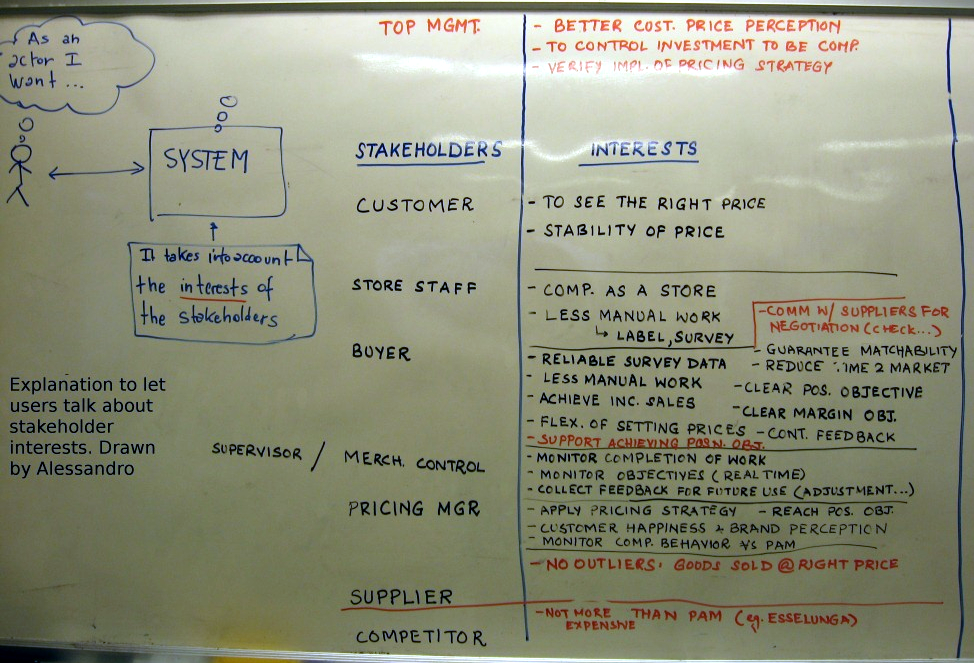 As an
actor I
want ...
SYSTEM
It takes into account
the interests of
the stakeholders
Explanation to let
users talk about
stakeholder
interests. Drawn
by Alessandro
TOP MGMT.
- BETTER COST. PRICE PERCEPTION
- TO CONTROL INVESTMENT TO BE COMP.
- VERIFY IMPL. OF PRICING STRATEGY
STAKEHOLDERS
INTERESTS
CUSTOMER
- TO SEE THE RIGHT PRICE
- STABILITY OF PRICE
STORE STAFF
- COMP. AS A STORE
- LESS MANUAL WORK
↳ LABEL, SURVEY
BUYER
- COMM W/ SUPPLIERS FOR
NEGOTIATION (CHECK...)
- GUARANTEE MATCHABILITY
- RELIABLE SURVEY DATA
- REDUCE TIME 2 MARKET
- LESS MANUAL WORK
- CLEAR POS. OBJECTIVE
- ACHIEVE INC. SALES
- CLEAR MARGIN OBJ.
- FLEX. OF SETTING PRICES
- CONT. FEEDBACK
- SUPPORT ACHIEVING POSN. OBJ.
SUPERVISOR / MERCH. CONTROL
- MONITOR COMPLETION OF WORK
- MONITOR OBJECTIVES (REAL TIME)
- COLLECT FEEDBACK FOR FUTURE USE (ADJUSTMENT...)
PRICING MGR
- APPLY PRICING STRATEGY - REACH POS. OBJ.
- CUSTOMER HAPPINESS & BRAND PERCEPTION
- MONITOR COMP. BEHAVIOR VS PAM
- NO OUTLIERS: GOODS SOLD @ RIGHT PRICE
SUPPLIER
COMPETITOR
- NOT MORE THAN PAM (eg. ESSELUNGA)
EXPENSIVE